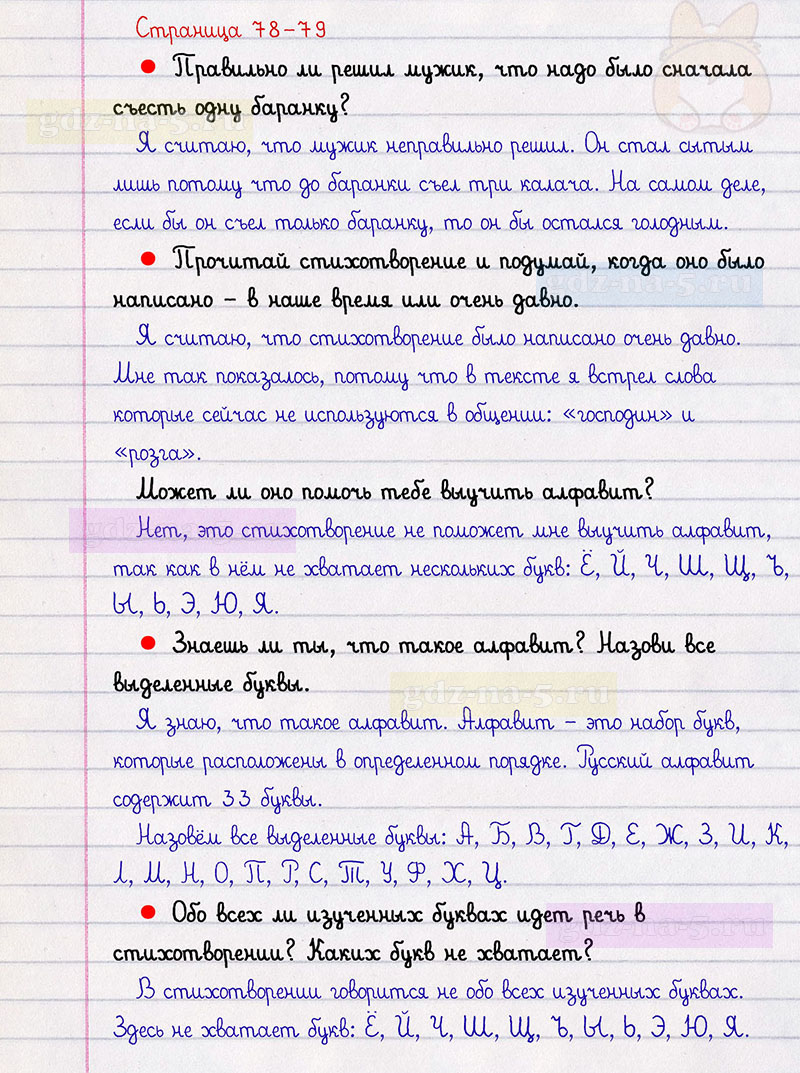 Страница 78-79
• Правильно ли решил мужик, что надо было сначала
съесть одну баранку?
gdz-na-5.ru
Я считаю, что мужик неправильно решил. Он стал сытым
лишь потому что до баранки съел три калача. На самом деле,
если бы он съел только баранку, то он бы остался голодным.
• Прочитай стихотворение и подумай, когда оно было
написано – в наше время или очень давно.
gdz-na-5.ru
Я считаю, что стихотворение было написано очень давно.
Мне так показалось, потому что в тексте я встрел слова
которые сейчас не используются в общении: «господин» и
«розга».
Может ли оно помочь тебе выучить алфавит?
gdz-na-5.ru
Нет, это стихотворение не поможет мне выучить алфавит,
так как в нём не хватает нескольких букв: Ё, Й, Ч, Ш, Щ, Ъ,
Ы, Ь, Э, Ю, Я.
• Знаешь ли ты, что такое алфавит? Назови все
выделенные буквы.
gdz-na-5.ru
Я знаю, что такое алфавит. Алфавит – это набор букв,
которые расположены в определенном порядке. Русский алфавит
содержит 33 буквы.
Назовём все выделенные буквы: А, Б, В, Г, Д, Е, Ж, З, И, К,
Л, М, Н, О, П, Р, С, Т, У, Ф, Х, Ц.
• Обо всех ли изученных буквах идет речь в
gdz-na-5.ru
стихотворении? Каких букв не хватает?
В стихотворении говорится не обо всех изученных буквах.
Здесь не хватает букв: Ё, Й, Ч, Ш, Щ, Ъ, Ы, Ь, Э, Ю, Я.